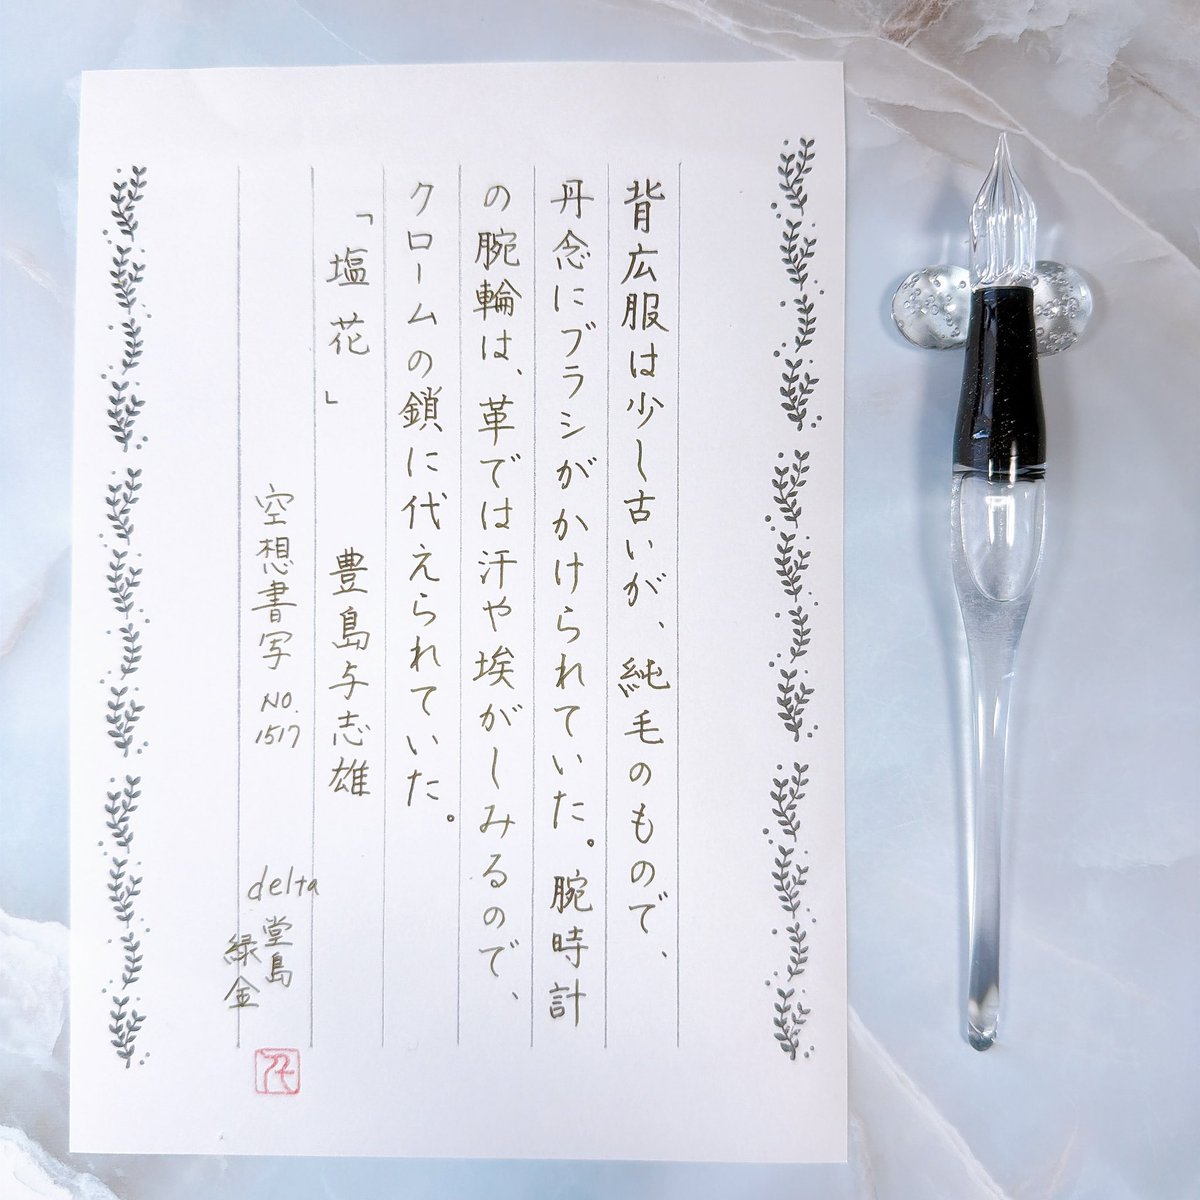 背広服は少し古いが、純毛のもので、
丹念にブラシがかけられていた。腕時計
の腕輪は、革では汗や埃がしみるので、
クロームの鎖に代えられていた。
「塩花」 豊島与志雄
空想書写 NO.1517
delta
堂島
緑金